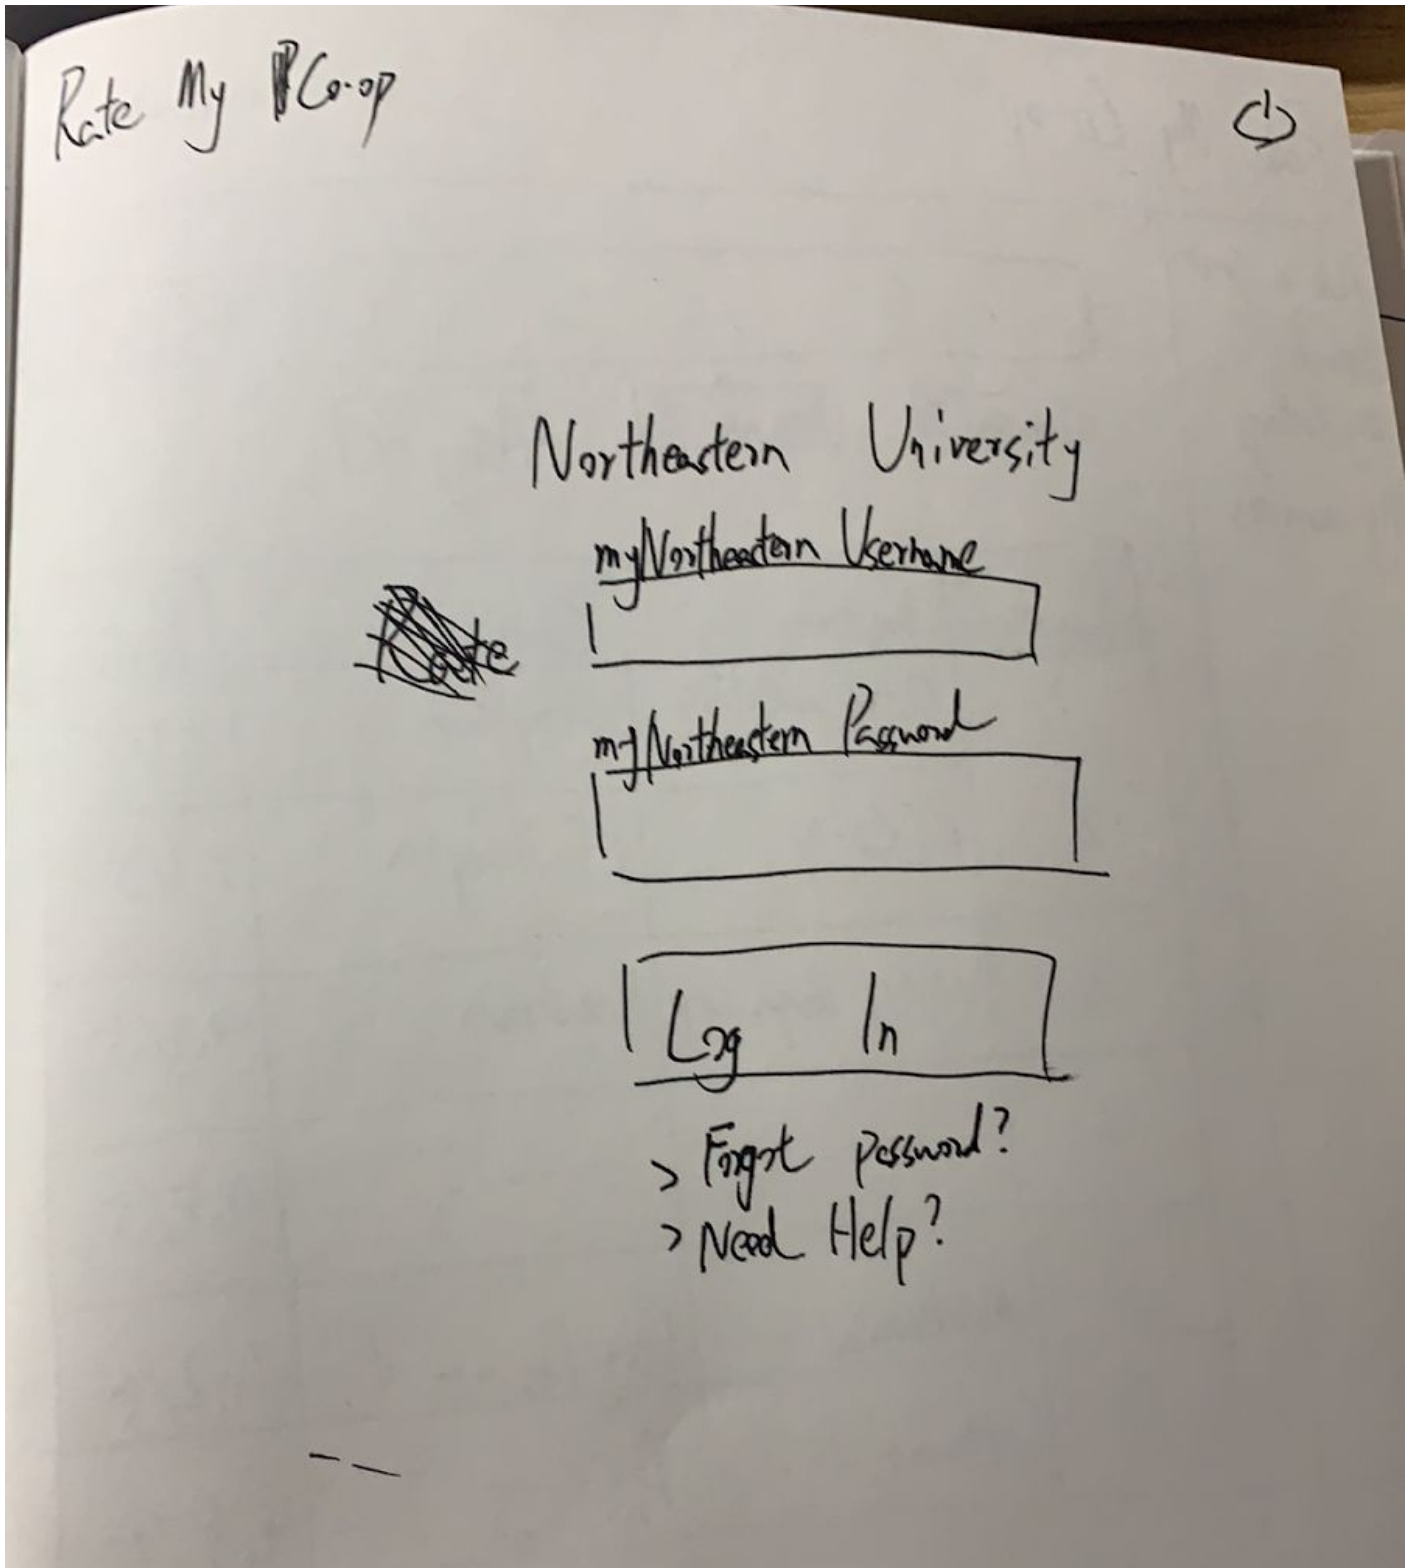 Rate My Co-op
Northeastern University
myNortheastern Username
Rate
myNortheastern Password
Log In
> Forgot password?
> Need Help?